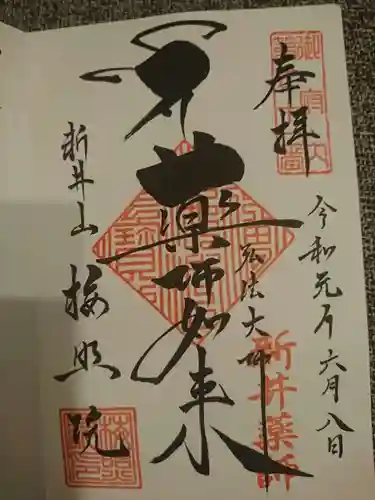 奉拝
令和元年六月八日
弘法大師
薬師如来
新井山
梅照院
新井薬師